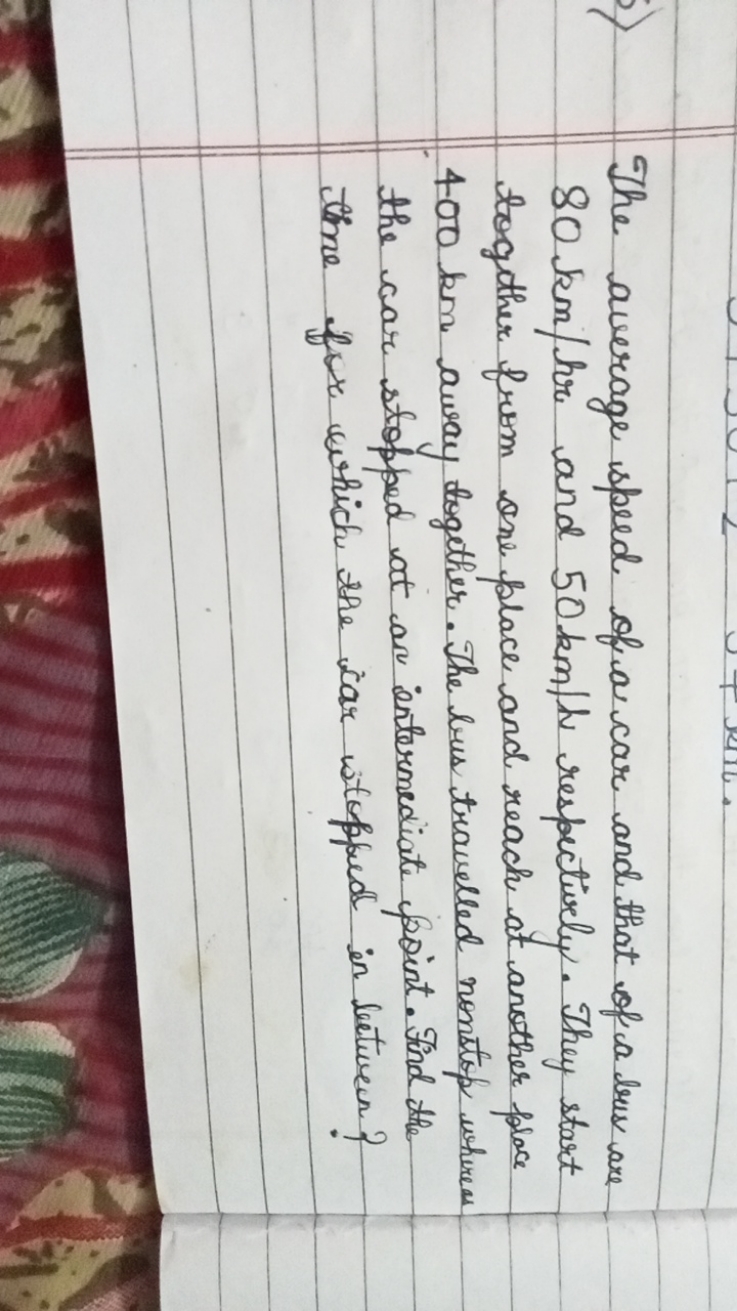 The average speed of a car and that of a bus are
80 km/hr and 50 km/h respectively. They start
together from one place and reach at another place
400 km away together. The bus travelled nonstop whereas
the car stopped at an intermediate point. Find the
time for which the car stopped in between?